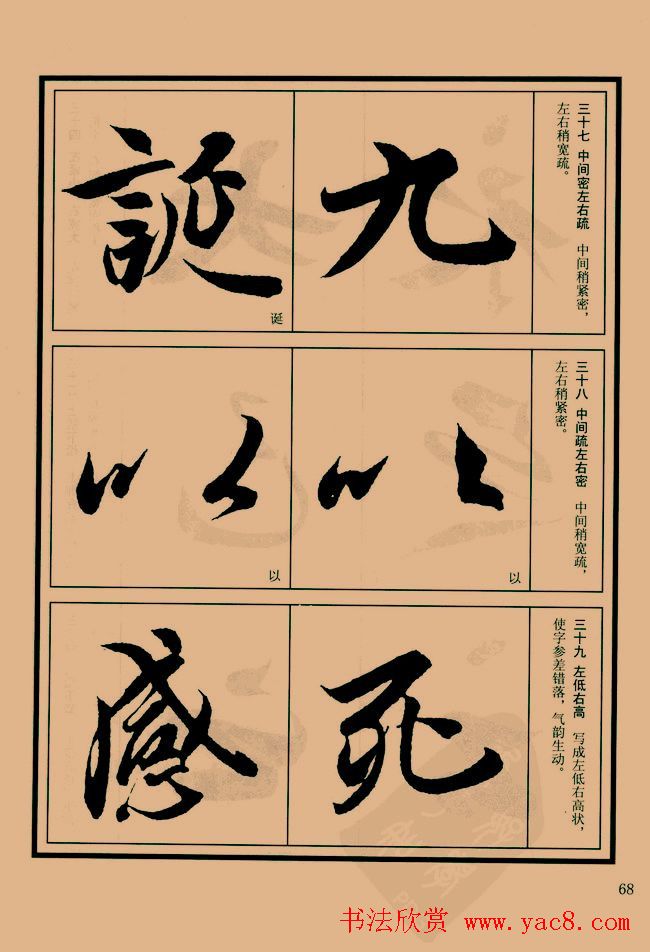 三十七 中间密左右疏 中间稍紧密，
左右稍宽疏。
九
誕
诞
三十八 中间疏左右密 中间稍宽疏，
左右稍紧密。
以
以
以
以
三十九 左低右高 写成左低右高状，
使字参差错落，气韵生动。
死
感
68
书法欣赏 www.yac8.com